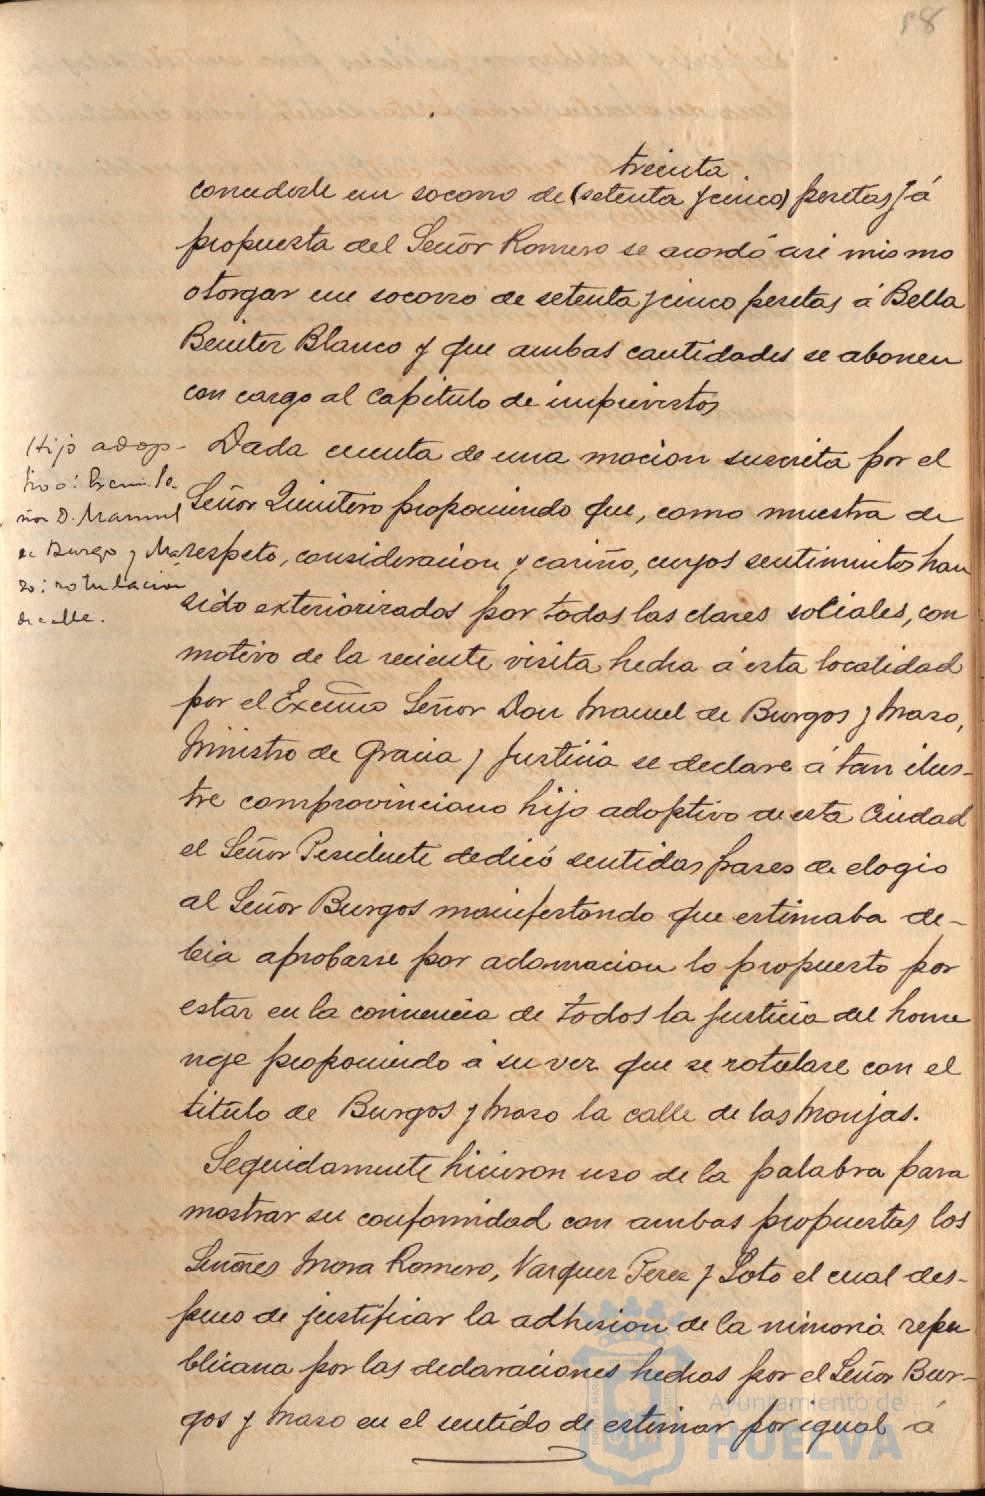 58
treinta
concederle un socorro de (setenta y cinco) pesetas y á
propuesta del Señor Romero se acordó asi mismo
otorgar un socorro de setenta y cinco pesetas á Bella
Benitez Blanco y que ambas cantidades se abonen
con cargo al capitulo de imprevistos
Hijo adop-
tivo: Excm. Se-
ñor D. Manuel
de Burgo y Ma
zo: rotulacion
de calle.
Dada cuenta de una mocion suscrita por el
Señor Quintero proponiendo que, como muestra de
respeto, consideracion y cariño, cuyos sentimientos han
sido exteriorizados por todas las clases sociales, con
motivo de la reciente visita hecha á esta localidad
por el Excmo Señor Don Manuel de Burgos y Mazo,
Ministro de Gracia y Justicia se declare á tan ilus-
tre comprovinciano hijo adoptivo de esta Ciudad
el Señor Presidente dedicó sentidas frases de elogio
al Señor Burgos manifestando que estimaba de-
bia aprobarse por aclamacion lo propuesto por
estar en la conciencia de todos la justicia del home
nage proponiendo á su vez que se rotulase con el
titulo de Burgos y Mazo la calle de las Monjas.
Seguidamente hicieron uso de la palabra para
mostrar su conformidad con ambas propuestas los
Señores Mora Romero, Vazquez Perez y Soto el cual des-
pues de justificar la adhesion de la minoria repu
blicana por las declaraciones hechas por el Señor Bur-
gos y Mazo en el sentido de estimar por igual á
Ayuntamiento de
HUELVA